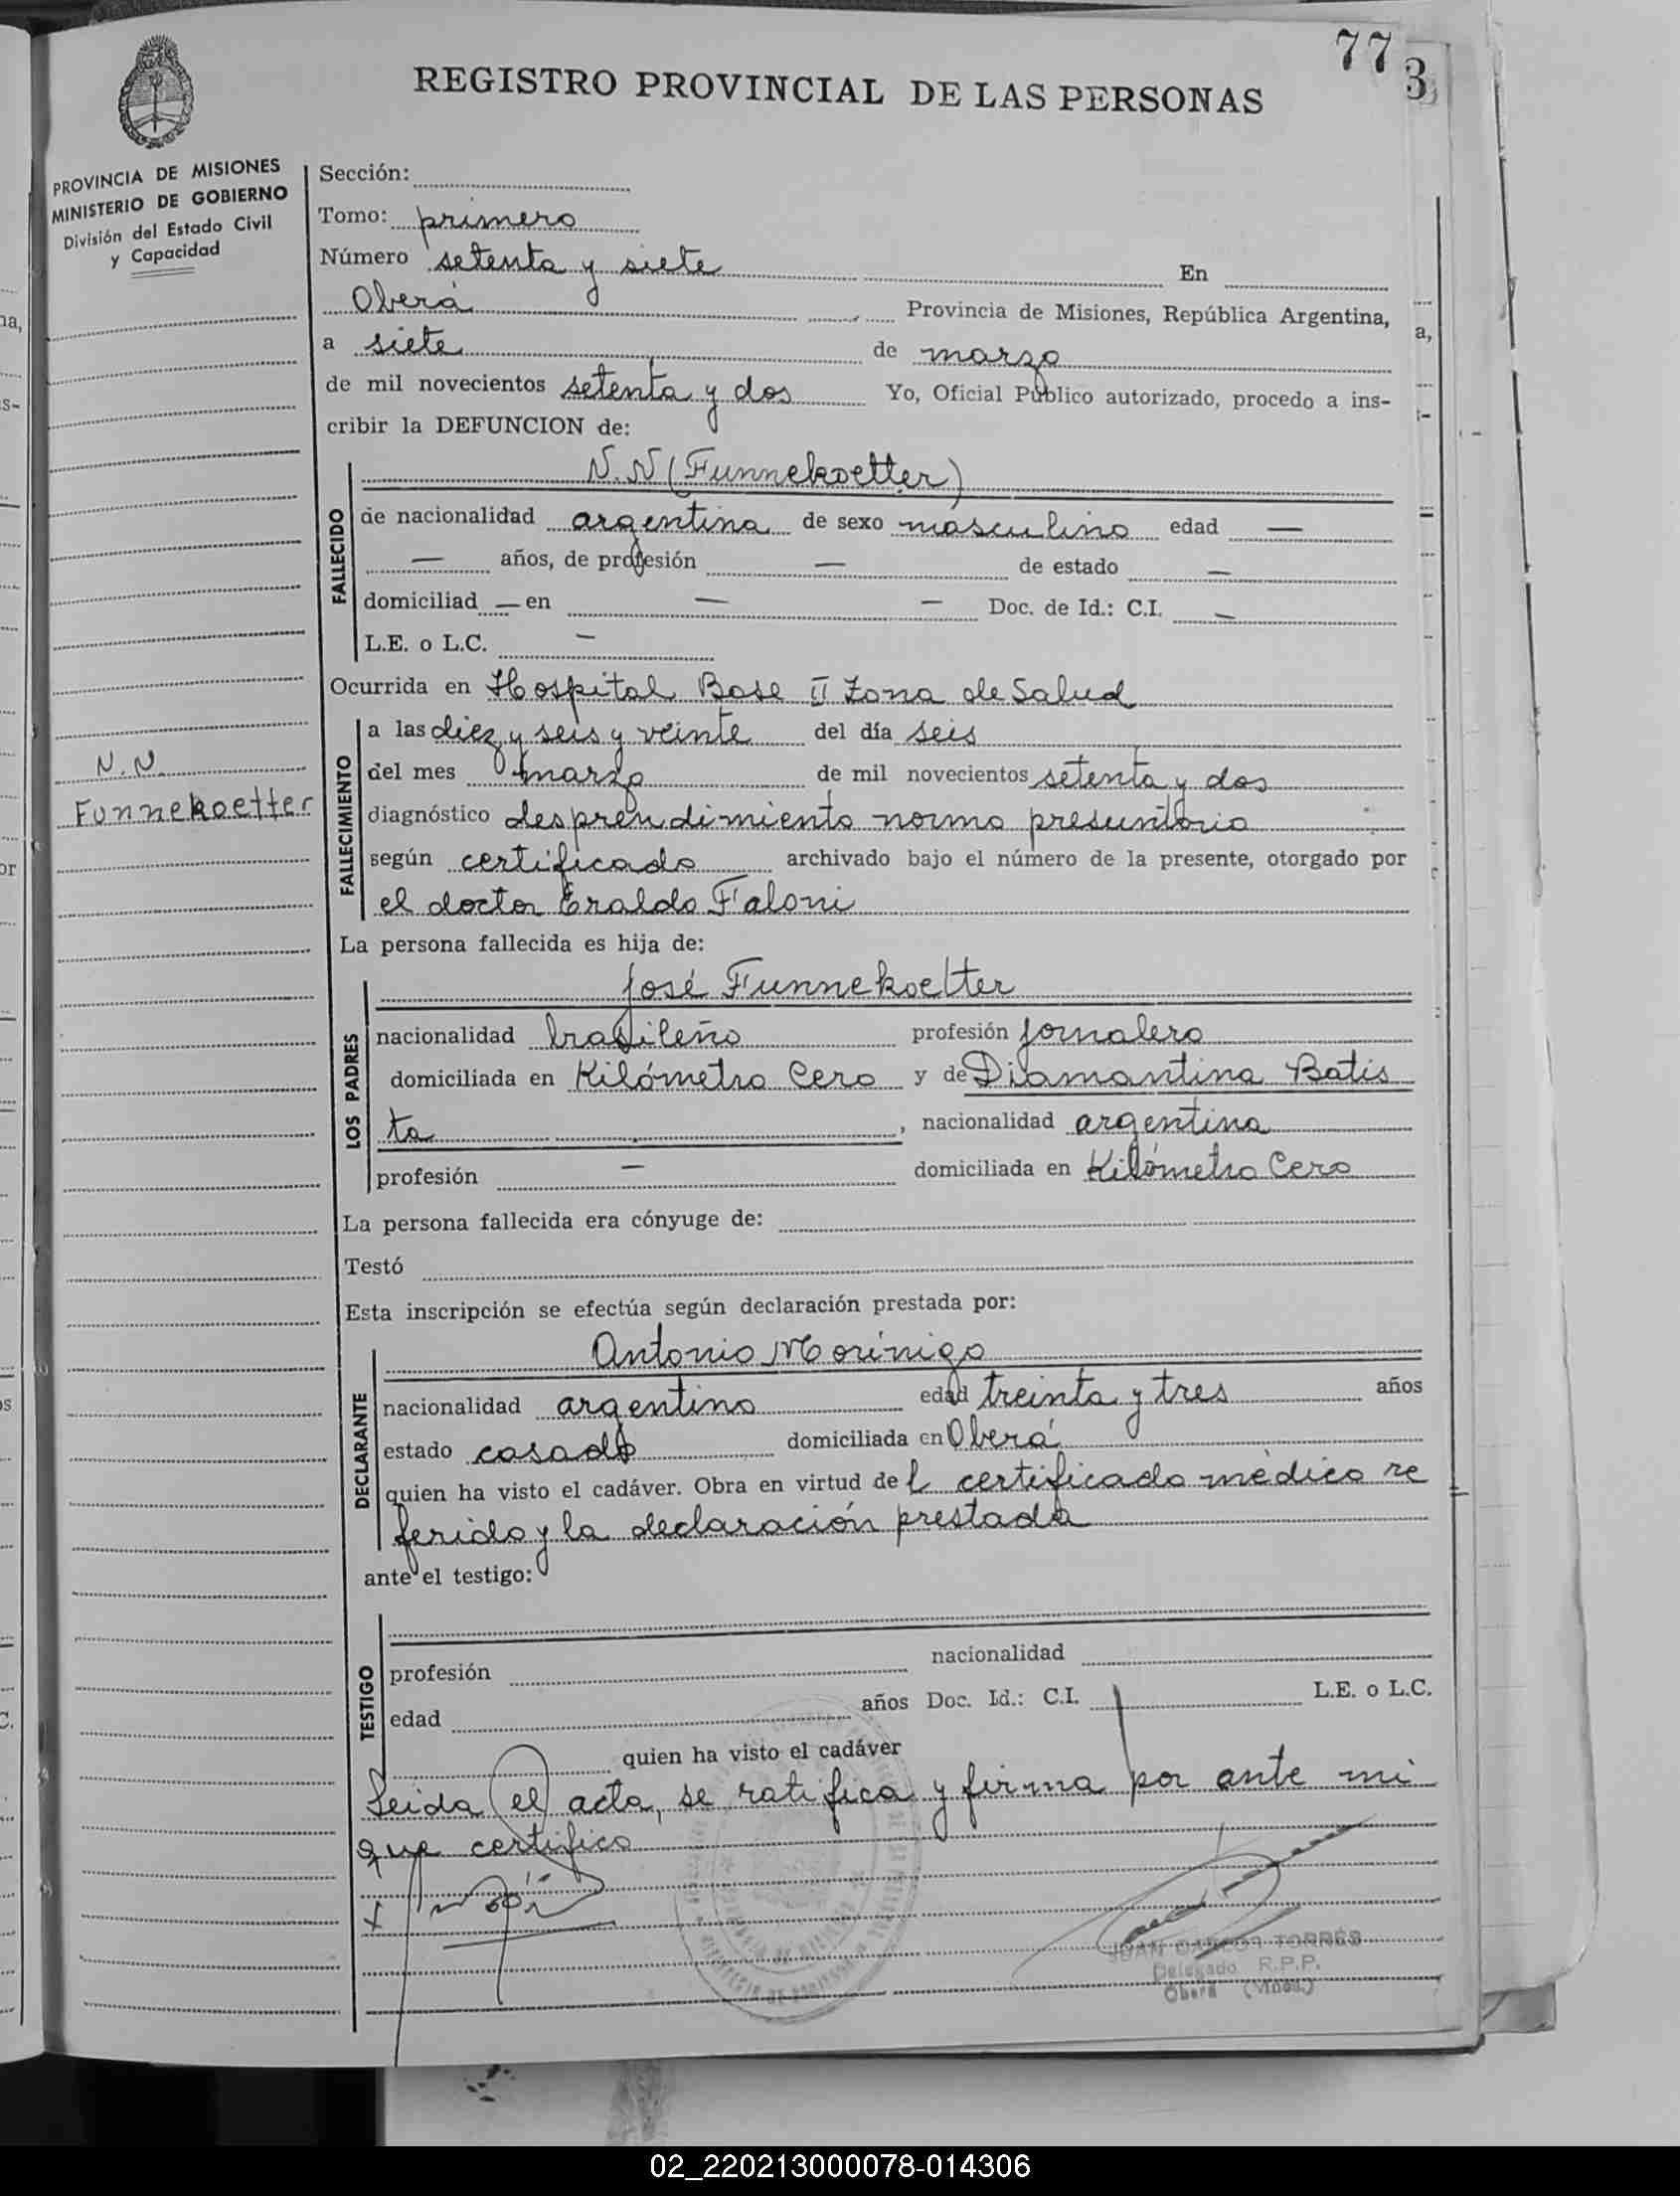 77
3
REGISTRO PROVINCIAL DE LAS PERSONAS
PROVINCIA DE MISIONES
MINISTERIO DE GOBIERNO
División del Estado Civil
y Capacidad
N.N.
Funnekoetter
Sección:
Tomo: primero
Número setenta y siete En
Oberá Provincia de Misiones, República Argentina,
a siete de marzo
de mil novecientos setenta y dos Yo, Oficial Público autorizado, procedo a ins-
cribir la DEFUNCION de:
N.N (Funnekoetter)
FALLECIDO
de nacionalidad argentina de sexo masculino edad —
— años, de profesión — de estado —
domiciliad — en — — Doc. de Id.: C.I. —
L.E. o L.C. —
Ocurrida en Hospital Base II Zona de Salud
FALLECIMIENTO
a las diez y seis y veinte del día seis
del mes marzo de mil novecientos setenta y dos
diagnóstico desprendimiento normo presuntorio
según certificado archivado bajo el número de la presente, otorgado por
el doctor Eraldo Faloni
La persona fallecida es hija de:
José Funnekoetter
LOS PADRES
nacionalidad brasileño profesión jornalero
domiciliada en Kilómetro Cero y de Diamantina Batis
ta, nacionalidad argentina
profesión — domiciliada en Kilómetro Cero
La persona fallecida era cónyuge de:
Testó
Esta inscripción se efectúa según declaración prestada por:
Antonio Morínigo
DECLARANTE
nacionalidad argentino edad treinta y tres años
estado casado domiciliada en Oberá
quien ha visto el cadáver. Obra en virtud de l certificado médico re
ferido y la declaración prestada
ante el testigo:
TESTIGO
profesión nacionalidad
edad años Doc. Id.: C.I. L.E. o L.C.
quien ha visto el cadáver
Leida el acta, se ratifica y firma por ante mi
que certifico
JUAN CARLOS TORRES
Delegado R.P.P.
Oberá (Mnes.)
02_220213000078-014306